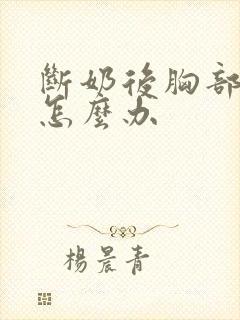 斷奶後胸部
怎麼办
楊晨青